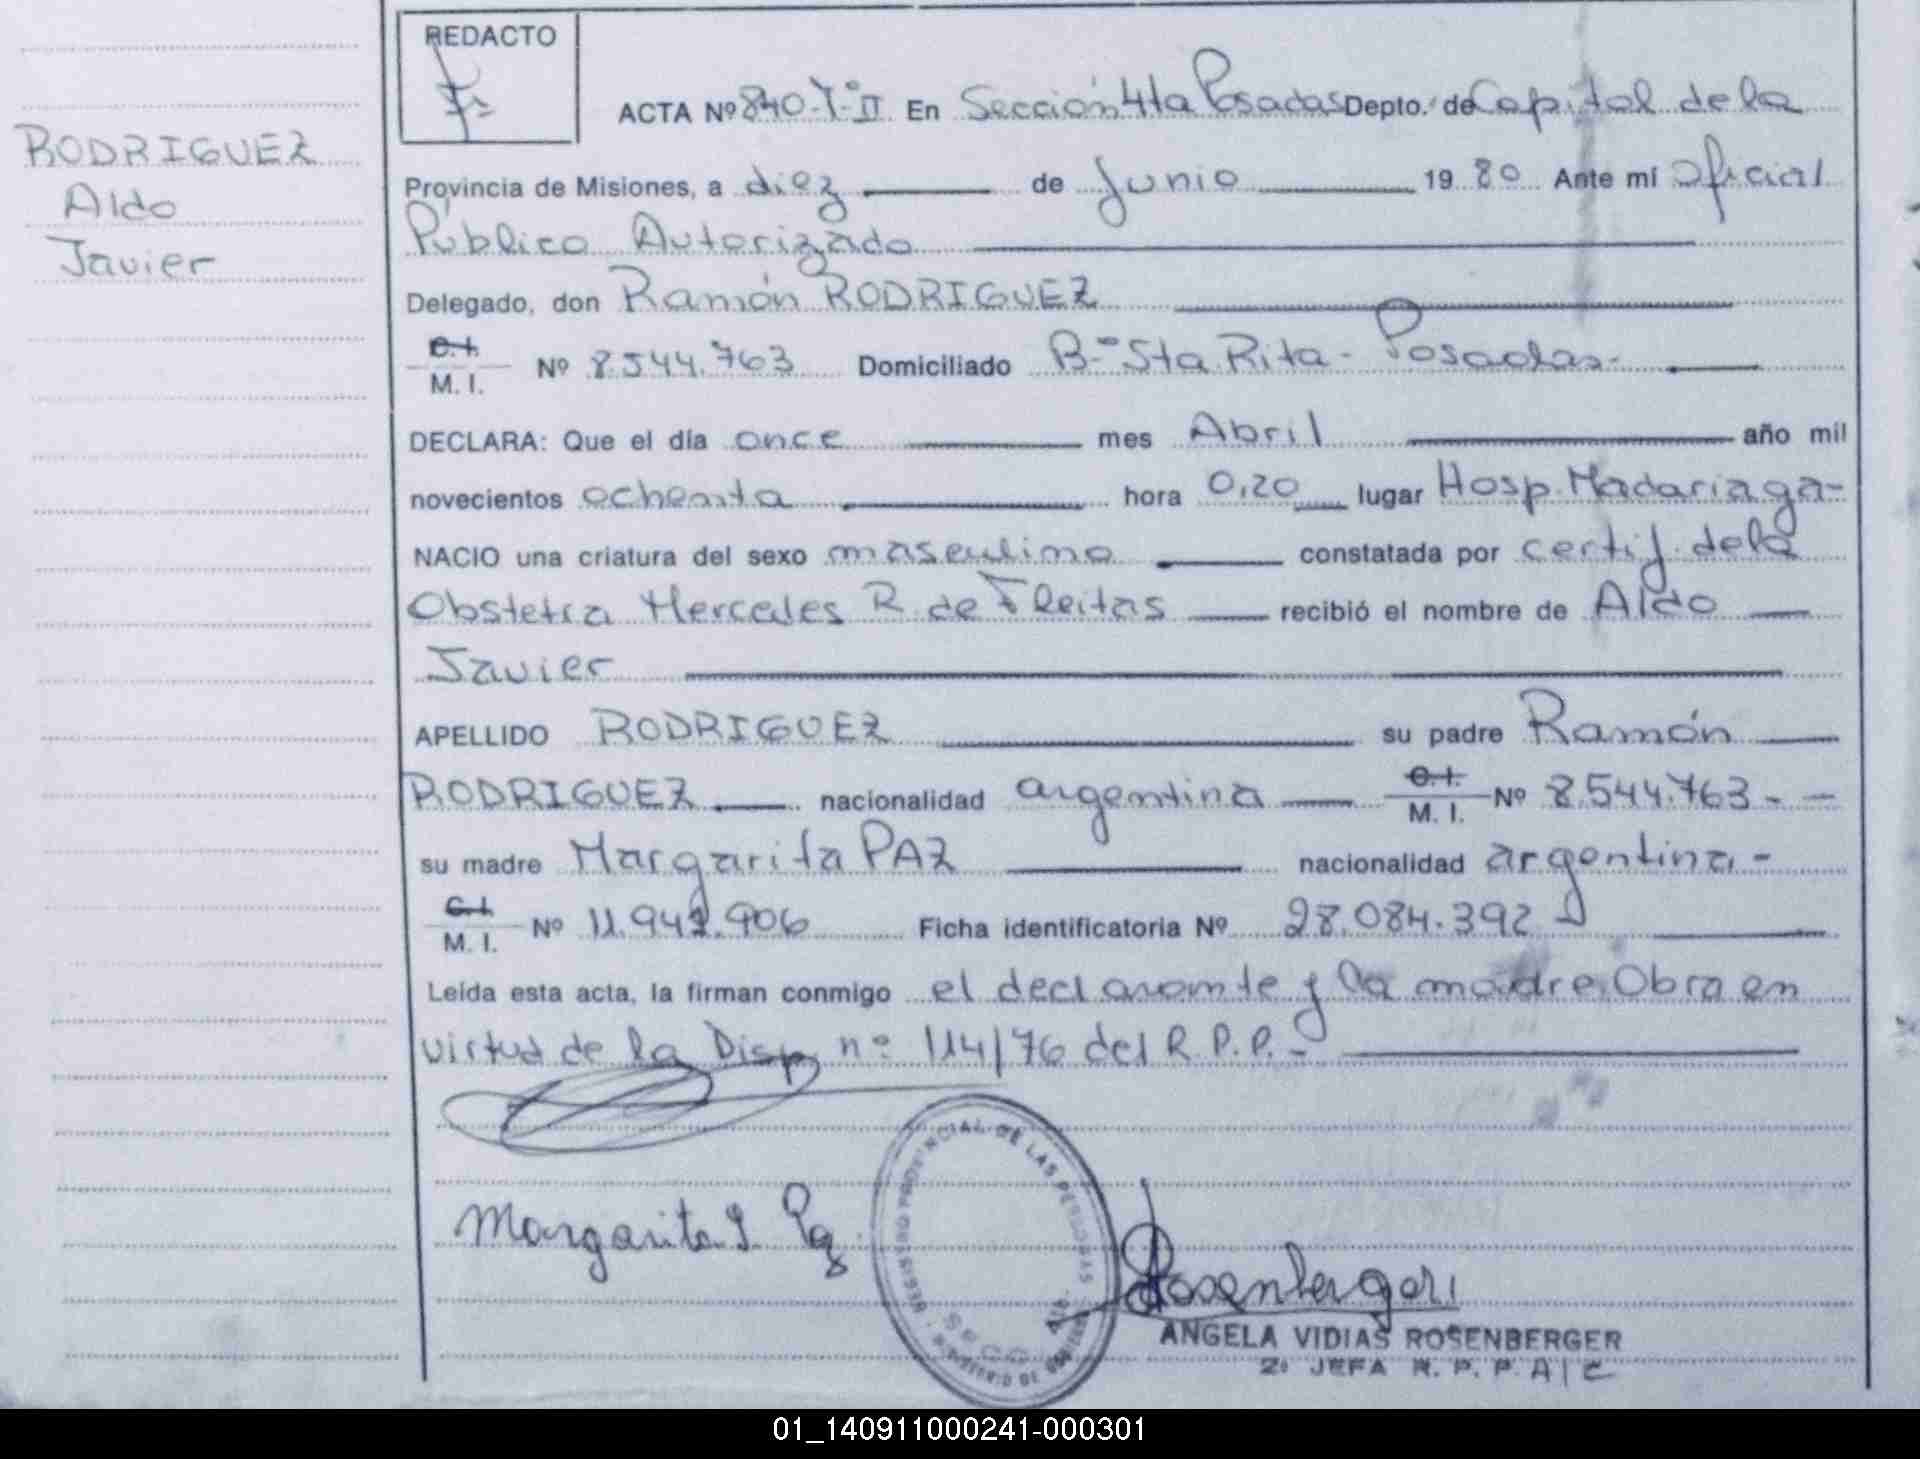 REDACTO
ACTA Nº 840-Tº-II En Sección 4ta Posadas Depto. de Capital de la
RODRIGUEZ
Aldo
Javier
Provincia de Misiones, a diez de Junio 1980 Ante mí Oficial
Público Autorizado
Delegado, don Ramón RODRIGUEZ
C.I. M. I. Nº 8.544.763 Domiciliado Bº Sta Rita - Posadas-
DECLARA: Que el día once mes Abril año mil
novecientos ochenta hora 0,20 lugar Hosp. Madariaga-
NACIO una criatura del sexo masculino constatada por certif. de la
Obstetra Mercedes R. de Fleitas recibió el nombre de Aldo
Javier
APELLIDO RODRIGUEZ su padre Ramón
RODRIGUEZ nacionalidad argentina C.I. M. I. Nº 8.544.763 - -
su madre Margarita PAZ nacionalidad argentina -
C.I. M. I. Nº 11.942.906 Ficha identificatoria Nº 28.084.392
Leída esta acta, la firman conmigo el declarante y la madre. Obra en
virtud de la Disp nº 114/76 del R.P.P.-
REGISTRO PROVINCIAL DE LAS PERSONAS
Margarita I. Paz
Rosenberger
ANGELA VIDIAS ROSENBERGER
2º JEFA R. P. P. A/C
01_140911000241-000301